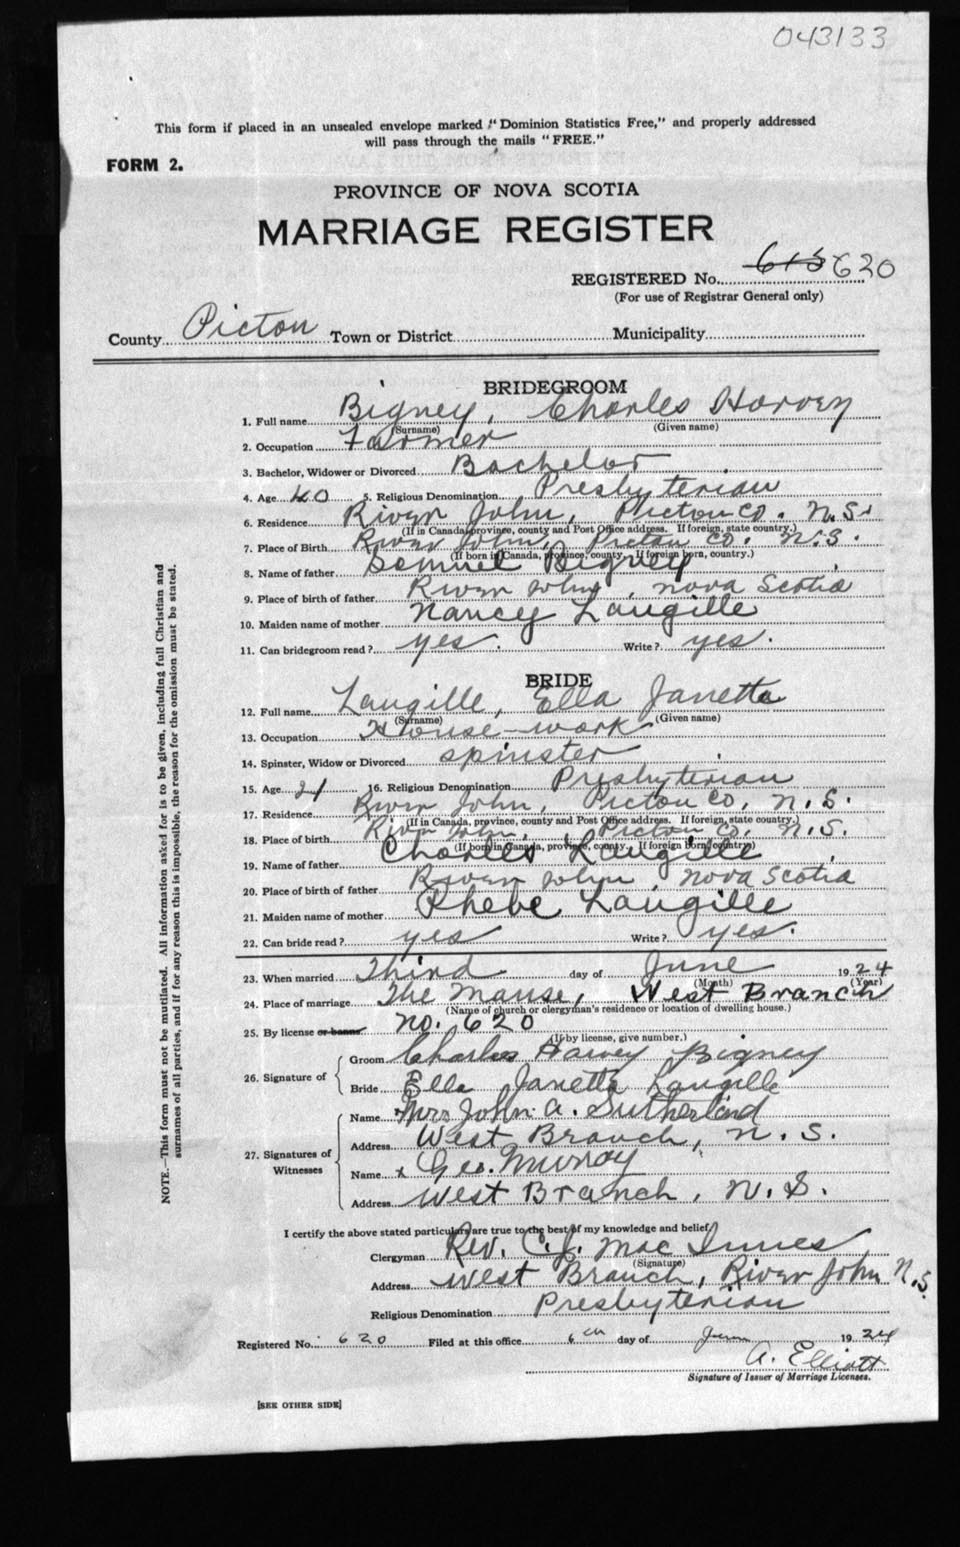 043133
This form if placed in an unsealed envelope marked "Dominion Statistics Free," and properly addressed
will pass through the mails "FREE."
FORM 2.
PROVINCE OF NOVA SCOTIA
MARRIAGE REGISTER
REGISTERED No. 613 620
(For use of Registrar General only)
County Pictou Town or District Municipality
BRIDEGROOM
1. Full name Bigney, Charles Harvey
(Surname) (Given name)
2. Occupation Farmer
3. Bachelor, Widower or Divorced Bachelor
4. Age 40 5. Religious Denomination Presbyterian
6. Residence River John, Pictou Co. N.S.
(If in Canada, province, county and Post Office address. If foreign, state country.)
7. Place of Birth River John, Pictou Co. N.S.
(If born in Canada, province, county. If foreign born, country.)
8. Name of father Samuel Bigney
9. Place of birth of father River John, Nova Scotia
10. Maiden name of mother Nancy Langille
11. Can bridegroom read? yes. Write? yes.
BRIDE
12. Full name Langille, Ella Janetta
(Surname) (Given name)
13. Occupation House-work
14. Spinster, Widow or Divorced spinster
15. Age 21 16. Religious Denomination Presbyterian
17. Residence River John, Pictou Co, N.S.
(If in Canada, province, county and Post Office address. If foreign, state country.)
18. Place of birth River John, Pictou Co. N.S.
(If born in Canada, province, county. If foreign born, country)
19. Name of father Charles Langille
20. Place of birth of father River John, Nova Scotia
21. Maiden name of mother Phebe Langille
22. Can bride read? yes Write? yes.
23. When married Third day of June 1924
(Month) (Year)
24. Place of marriage The Manse, West Branch
(Name of church or clergyman's residence or location of dwelling house.)
25. By license or banns. no. 620
(If by license, give number.)
26. Signature of Groom Charles Harvey Bigney
Bride Ella Janetta Langille
27. Signatures of Witnesses Name Mrs John A. Sutherland
Address West Branch, N.S.
Name x Geo. Murray
Address West Branch, N.S.
I certify the above stated particulars are true to the best of my knowledge and belief.
Clergyman Rev. C. J. MacInnes
(Signature)
Address West Branch, River John N.S.
Religious Denomination Presbyterian
Registered No. 620 Filed at this office 6th day of June 1924
A. Elliott
Signature of Issuer of Marriage Licenses.
[SEE OTHER SIDE]
NOTE.—This form must not be mutilated. All information asked for is to be given, including full Christian and
surnames of all parties, and if for any reason this is impossible, the reason for the omission must be stated.